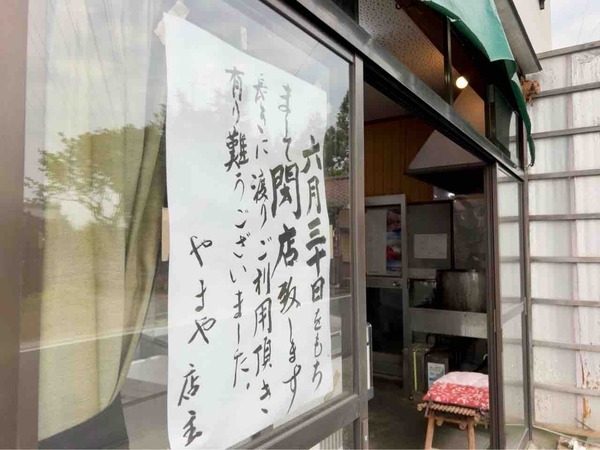 六月三十日をもち
まして閉店致します
長きに渡りご利用頂き、
有り難うございました。
やまや 店主